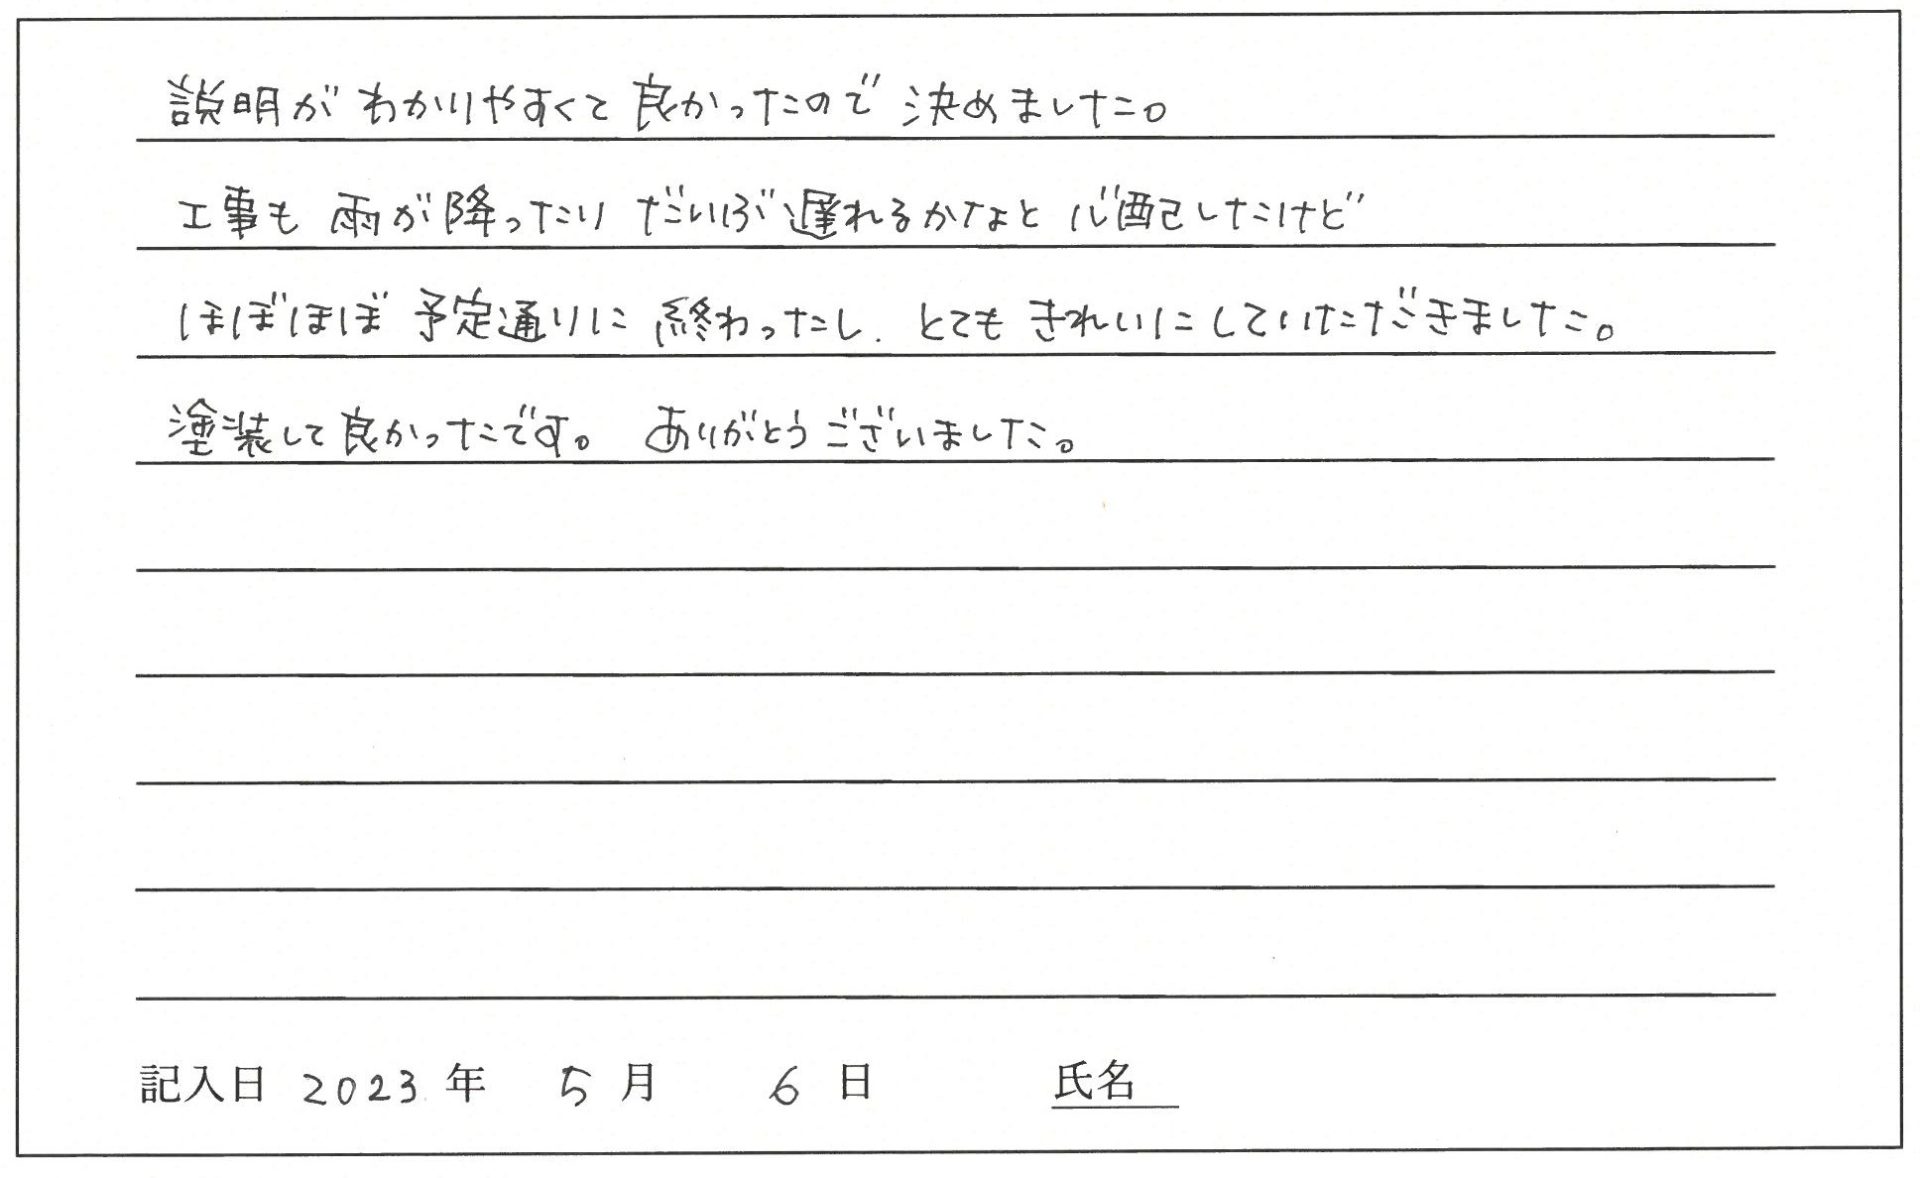 説明がわかりやすくて良かったので決めました。
工事も雨が降ったりだいぶ遅れるかなと心配したけど
ほぼほぼ予定通りに終わったし、とてもきれいにしていただきました。
塗装して良かったです。ありがとうございました。
記入日 2023 年 5 月 6 日 氏名